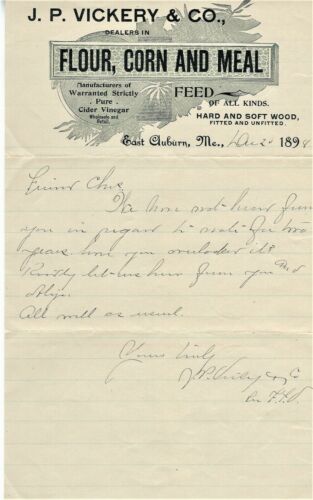 J. P. VICKERY & CO.,
DEALERS IN
FLOUR, CORN AND MEAL
Manufacturers of
Warranted Strictly
. Pure .
Cider Vinegar
Wholesale and
Retail.
FEED
OF ALL KINDS.
HARD AND SOFT WOOD,
FITTED AND UNFITTED.
East Auburn, Me., 189
Friend Chas
We have not hear from
you in regard to note for two
years have you overlooked it?
Kindly let us hear from you and
oblige.
All well as usual.
Yours truly
J. P. Vickery & Co